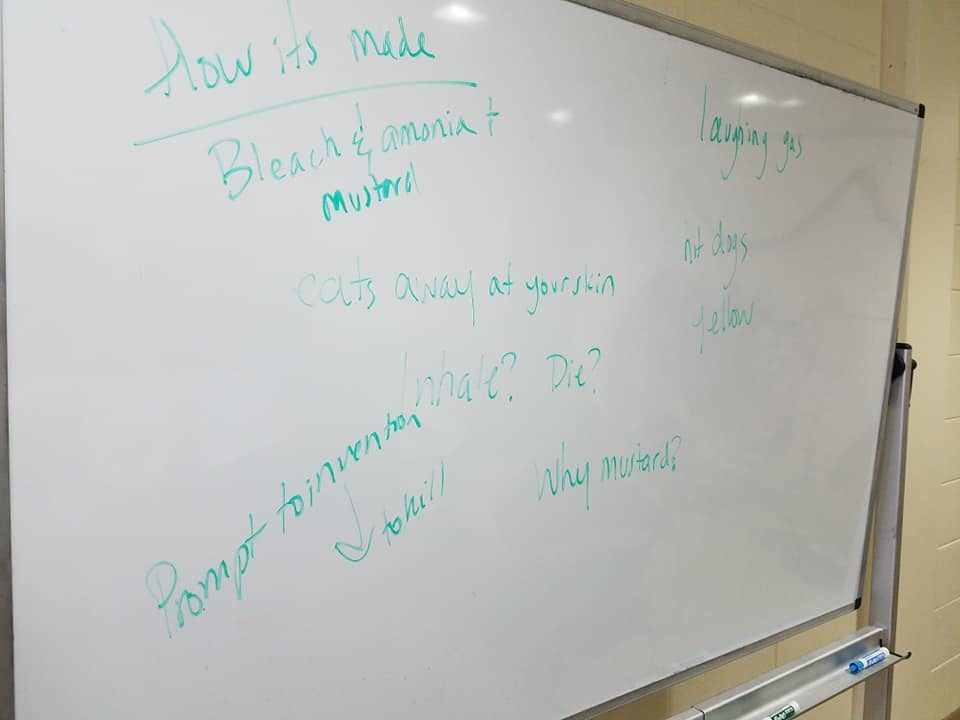 How its made
Bleach & amonia +
mustard
eats away at your skin
Inhale? Die?
Prompt to invention
to kill
Why mustard?
laughing gas
hot dogs
yellow